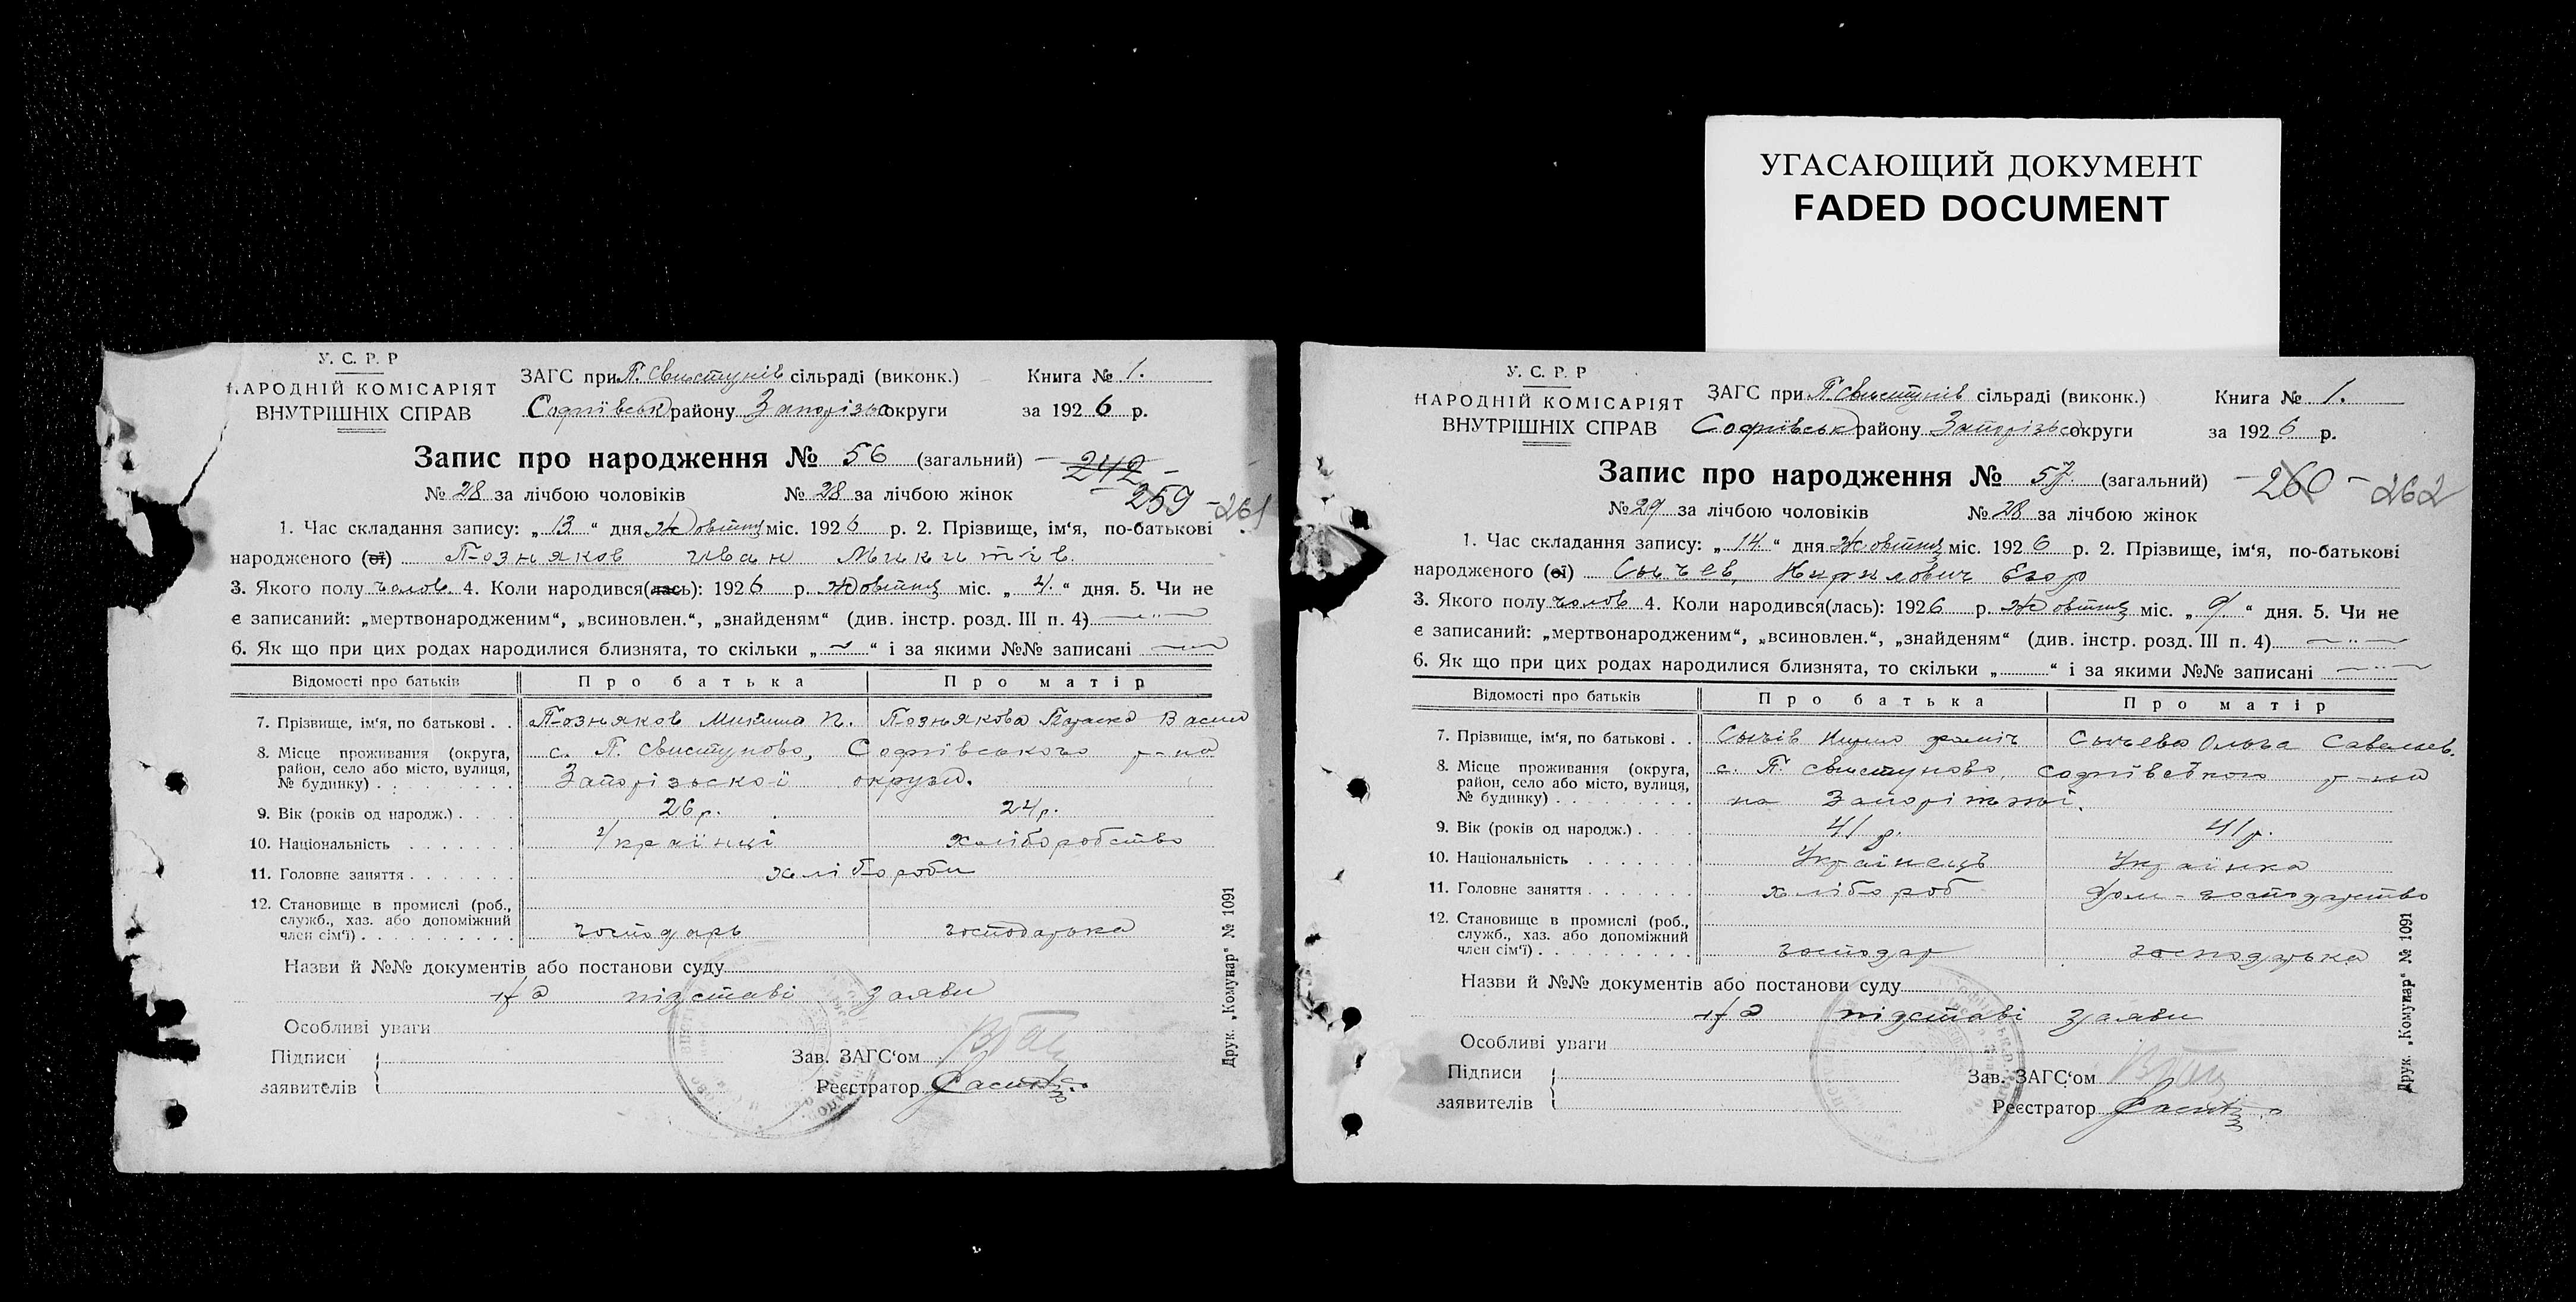 УГАСАЮЩИЙ ДОКУМЕНТ
FADED DOCUMENT
У. С. Р. Р
НАРОДНІЙ КОМІСАРІЯТ
ВНУТРІШНІХ СПРАВ
ЗАГС при П. Свистунів сільраді (виконк.)
Софіївськ району Запорізьк округи
Книга № 1.
за 1926 р.
Запис про народження № 56 (загальний) — 242 —
259 - 261
№ 28 за лічбою чоловіків № 28 за лічбою жінок
1. Час складання запису: „ 13 “ дня Жовтня міс. 1926 р. 2. Прізвище, ім‘я, по-батькові
народженого (ої) Позняков Иван Микитів.
3. Якого полу чолов. 4. Коли народився(лась): 1926 р. Жовтня міс. „ 4. “ дня. 5. Чи не
є записаний: „мертвонародженим“, „всиновлен.“, „знайденям“ (див. інстр. розд. III п. 4)
6. Як що при цих родах народилися близнята, то скільки „ — “ і за якими №№ записані
Відомості про батьків Про батька Про матір
7. Прізвище, ім‘я, по батькові . . Позняков Микита П. Познякова Параска Васил
8. Місце проживання (округа, район, село або місто, вулиця, № будинку) с. П. Свистуново, Софіївського р-на
Запорізської округи.
9. Вік (років од народж.) 26 р. 24 р.
10. Національність Українці хліборобство
11. Головне заняття хлібороби
12. Становище в промислі (роб., служб., хаз. або допоміжний член сім‘ї) господарь господарька
Назви й №№ документів або постанови суду
На підставі заяви
Особливі уваги
Підписи
заявителів
Зав. ЗАГС‘ом
Реєстратор
Друк. „Комунар“ № 1091
У. С. Р. Р
НАРОДНІЙ КОМІСАРІЯТ
ВНУТРІШНІХ СПРАВ
ЗАГС при П. Свистунів сільраді (виконк.)
Софіївськ району Запорізьк округи
Книга № 1.
за 1926 р.
Запис про народження № 57. (загальний) — 260 — 262
№ 29 за лічбою чоловіків № 28 за лічбою жінок
1. Час складання запису: „ 14 “ дня Жовтня міс. 1926 р. 2. Прізвище, ім‘я, по-батькові
народженого (ої) Сычев, Кирилович Егор
3. Якого полу чолов 4. Коли народився(лась): 1926 р. Жовтня міс. „ 9. “ дня. 5. Чи не
є записаний: „мертвонародженим“, „всиновлен.“, „знайденям“ (див. інстр. розд. III п. 4)
6. Як що при цих родах народилися близнята, то скільки „ “ і за якими №№ записані
Відомості про батьків Про батька Про матір
7. Прізвище, ім‘я, по батькові . . Сычів Сычева Ольга Савельев.
8. Місце проживання (округа, район, село або місто, вулиця, № будинку) с. П. Свистуново, Софіївського р-на
на
9. Вік (років од народж.) 41 р. 41 р.
10. Національність Українець Українка
11. Головне заняття хлібороб дом-господарство
12. Становище в промислі (роб., служб., хаз. або допоміжний член сім‘ї) господар господарька
Назви й №№ документів або постанови суду
На підставі заяви
Особливі уваги
Підписи
заявителів
Зав. ЗАГС‘ом
Реєстратор
Друк. „Комунар“ № 1091